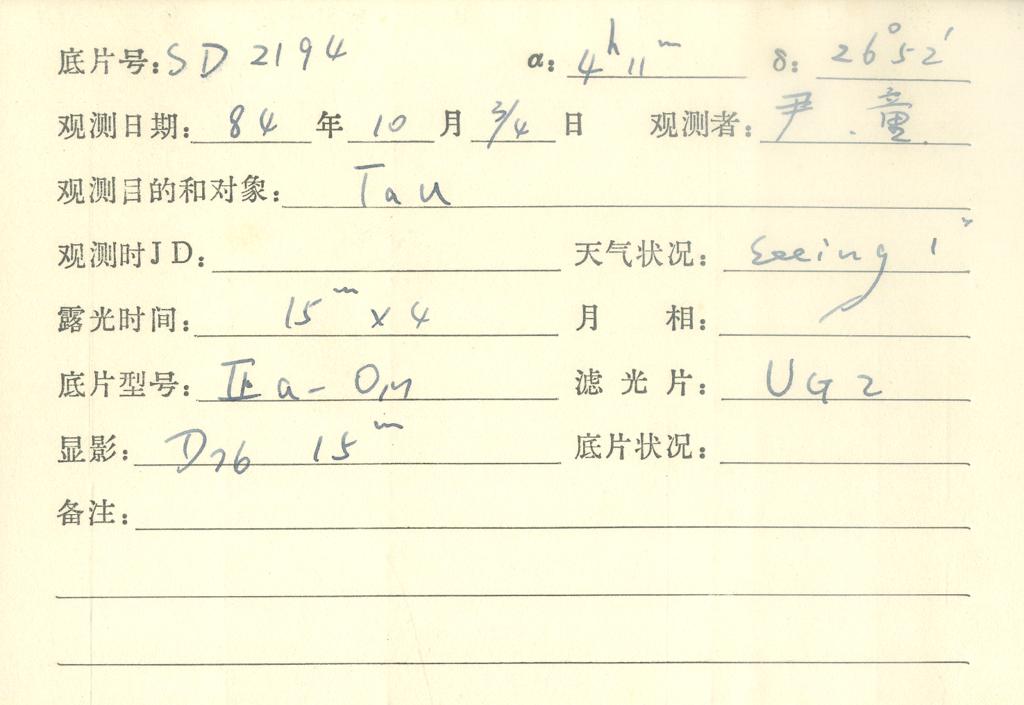 底片号: SD 2194 α: 4ʰ 11ᵐ δ: 26°52′
观测日期: 84 年 10 月 3/4 日 观测者: 尹.童.
观测目的和对象: Tau
观测时JD: 天气状况: Seeing 1″
露光时间: 15ᵐ × 4 月 相:
底片型号: IIa-O, 滤光片: UG2
显影: D76 15ᵐ 底片状况:
备注: